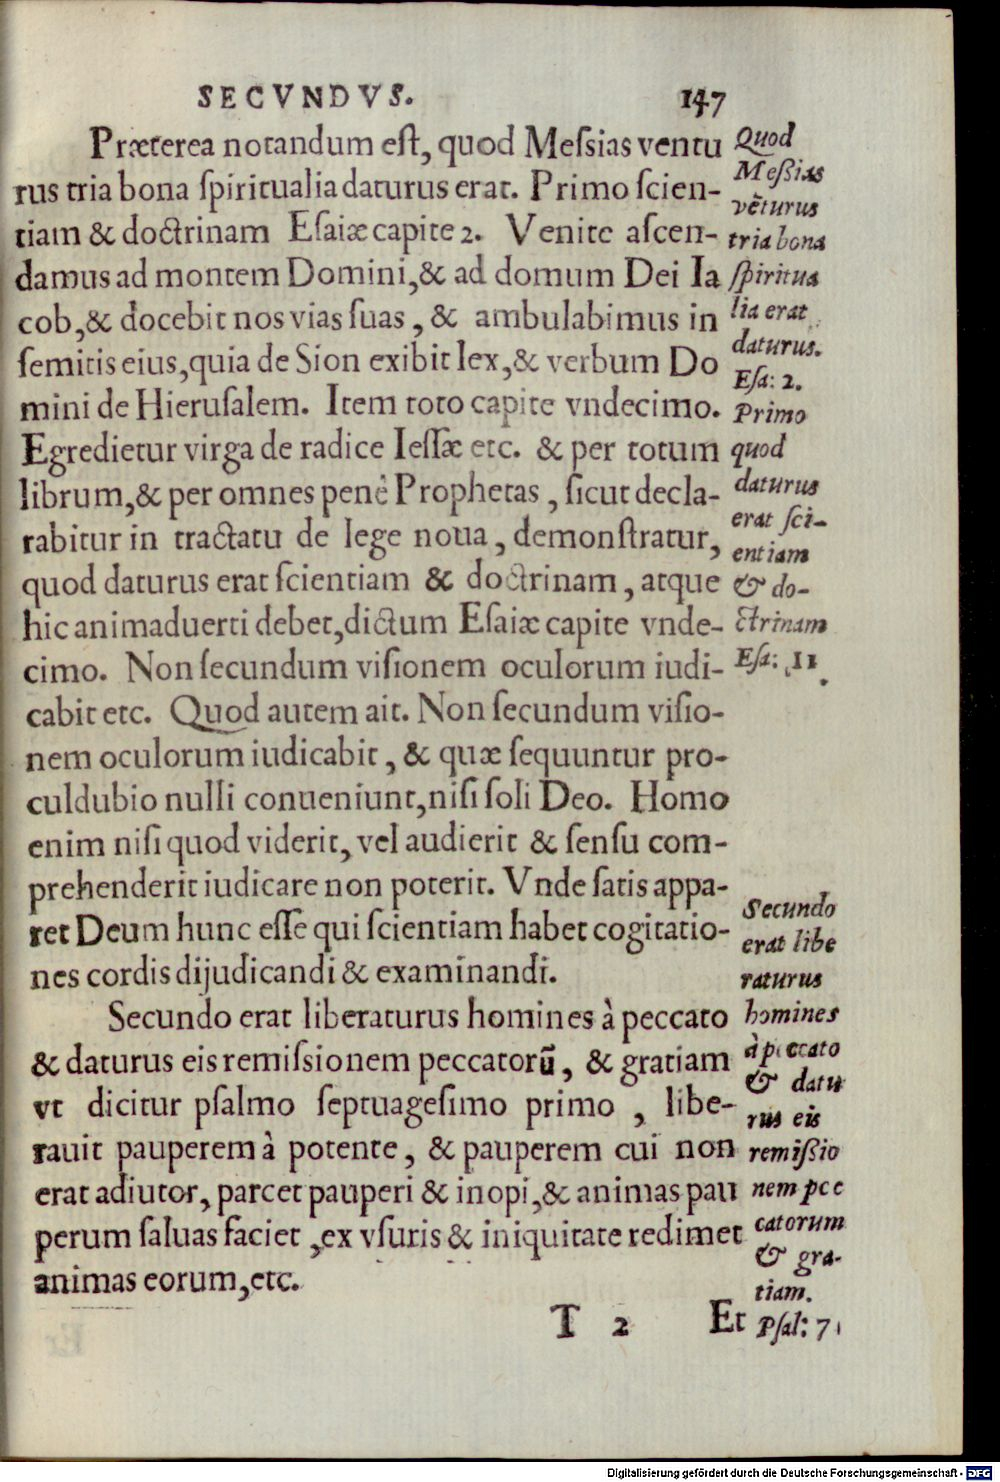 SECVNDVS. 147
Præterea notandum est, quod Messias ventu
rus tria bona spiritualia daturus erat. Primo scien-
tiam & doctrinam Esaiæ capite 2. Venite ascen-
damus ad montem Domini, & ad domum Dei Ia
cob, & docebit nos vias suas, & ambulabimus in
semitis eius, quia de Sion exibit lex, & verbum Do
mini de Hierusalem. Item toto capite vndecimo.
Egredietur virga de radice Iessæ etc. & per totum
librum, & per omnes penè Prophetas, sicut decla-
rabitur in tractatu de lege noua, demonstratur,
quod daturus erat scientiam & doctrinam, atque
hic animaduerti debet, dictum Esaiæ capite vnde-
cimo. Non secundum visionem oculorum iudi-
cabit etc. Quod autem ait. Non secundum visio-
nem oculorum iudicabit, & quæ sequuntur pro-
culdubio nulli conueniunt, nisi soli Deo. Homo
enim nisi quod viderit, vel audierit & sensu com-
prehenderit iudicare non poterit. Vnde satis appa-
ret Deum hunc esse qui scientiam habet cogitatio-
nes cordis dijudicandi & examinandi.
Secundo erat liberaturus homines à peccato
& daturus eis remissionem peccatorũ, & gratiam
vt dicitur psalmo septuagesimo primo, libe-
rauit pauperem à potente, & pauperem cui non
erat adiutor, parcet pauperi & inopi, & animas pau
perum saluas faciet, ex vsuris & iniquitate redimet
animas eorum, etc.
T 2 Et
Quod
Messias
vẽturus
tria bona
spiritua
lia erat
daturus.
Esa: 2.
Primo
quod
daturus
erat sci-
entiam
& do-
ctrinam
Esa: 11
Secundo
erat libe
raturus
homines
à peccato
& datu
rus eis
remissio
nem pec
catorum
& gra-
tiam.
Psal: 71
Digitalisierung gefördert durch die Deutsche Forschungsgemeinschaft - DFG